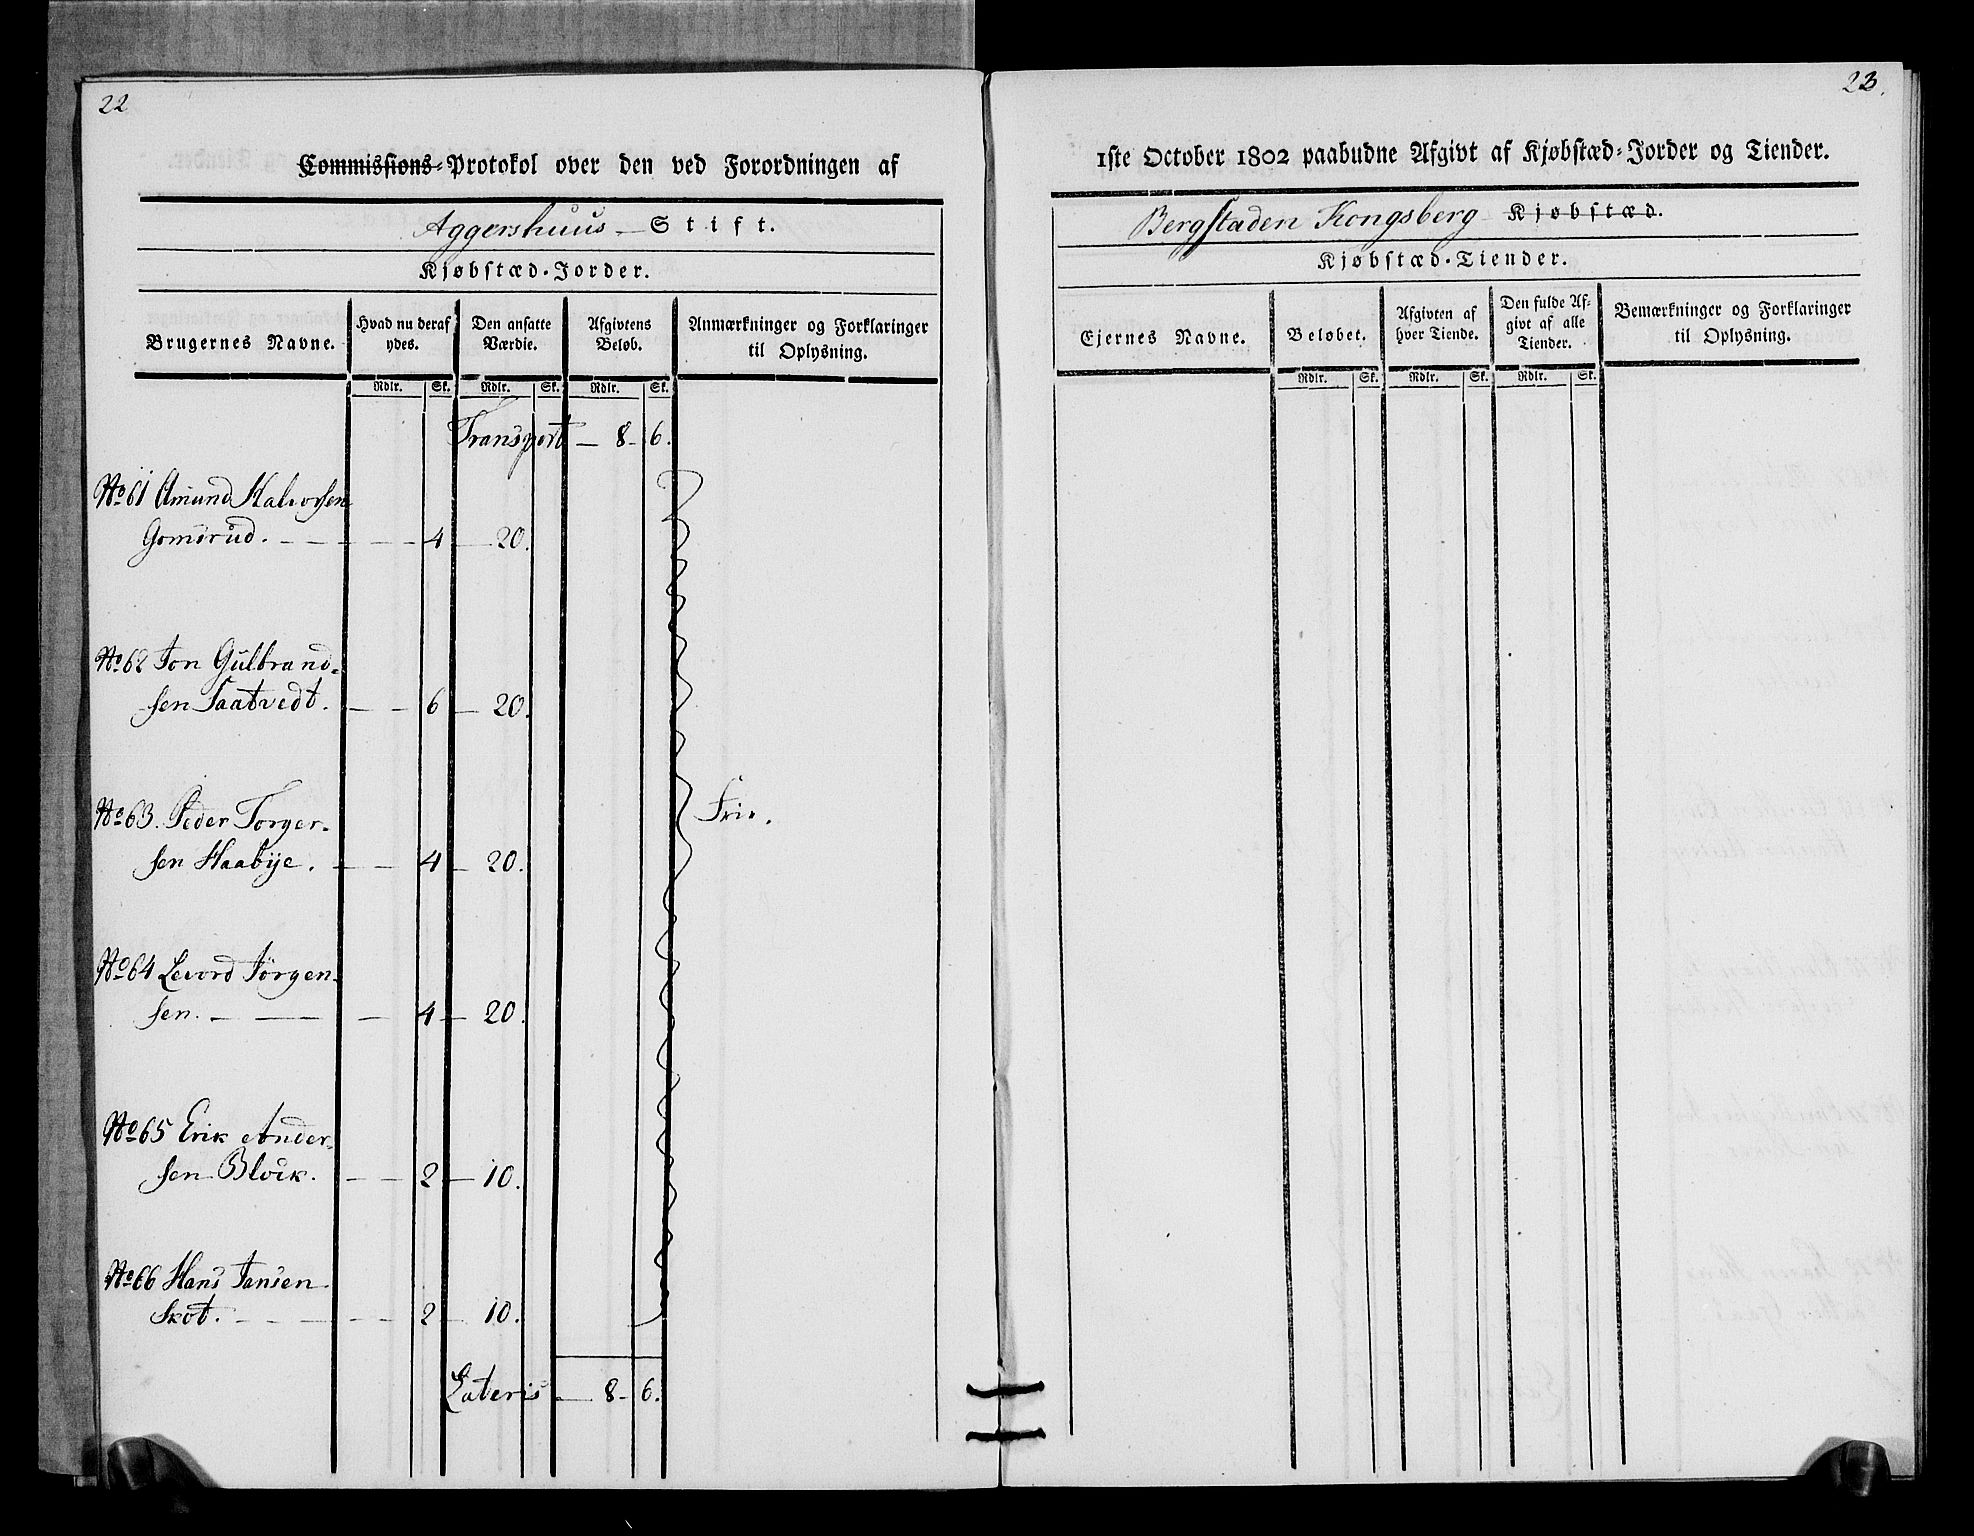 22
Commissions-Protokol over den ved Forordningen af
Aggershuus Stift.
Kjøbstæd-Jorder.
Brugernes Navne. Hvad nu deraf ydes. Den ansatte Værdie. Afgivtens Beløb. Anmærkninger og Forklaringer til Oplysning.
Rdlr. Sk. Rdlr. Sk. Rdlr. Sk.
Transport — 8 - 6.
No 61 Amund Halvorsen
Gomsrud. - - - 4 - 20.
No 62 Jon Gulbrand-
sen Saatvedt. - - 6 - 20.
No 63. Peder Torger-
sen Haabye. - - 4 - 20. Frie.
No 64 Levord Jörgen-
sen. - - - 4 - 20.
No 65 Erik Ander-
sen Block. - - 2 - 10.
No 66 Hans Jansen
Skot. - - - 2 - 10.
Lateris — 8 - 6.
23.
1ste October 1802 paabudne Afgivt af Kjøbstæd-Jorder og Tiender.
Bergstaden Kongsberg Kjøbstæd.
Kjøbstæd-Tiender.
Ejernes Navne. Beløbet. Afgivten af hver Tiende. Den fulde Afgivt af alle Tiender. Bemærkninger og Forklaringer til Oplysning.
Rdlr. Sk. Rdlr. Sk. Rdlr. Sk.